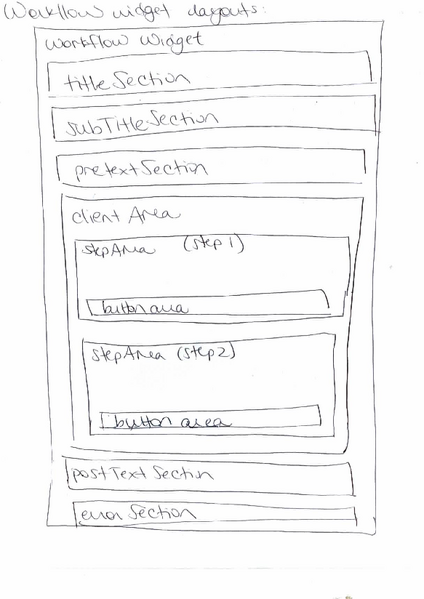 Workflow widget layouts:
Workflow Widget
titleSection
subTitleSection
pretextSection
client Area
stepArea (step 1)
button area
stepArea (step2)
button area
postTextSection
error Section